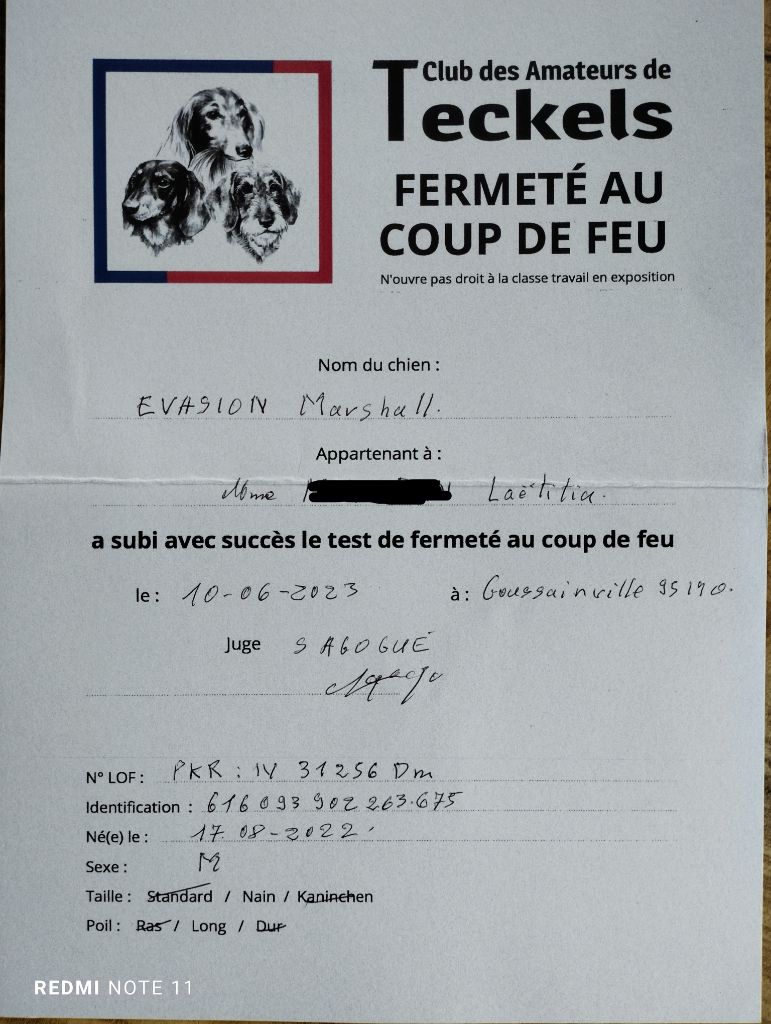 Club des Amateurs de
Teckels
FERMETÉ AU
COUP DE FEU
N'ouvre pas droit à la classe travail en exposition
Nom du chien :
EVASION Marshall.
Appartenant à :
Mme Laëtitia.
a subi avec succès le test de fermeté au coup de feu
le : 10-06-2023 à : Goussainville 95190.
Juge SAGOGUÉ
N° LOF : PKR : IV 31256 Dm
Identification : 616 093 902 263.675
Né(e) le : 17 08-2022.
Sexe : M
Taille : Standard / Nain / Kaninchen
Poil : Ras / Long / Dur
REDMI NOTE 11